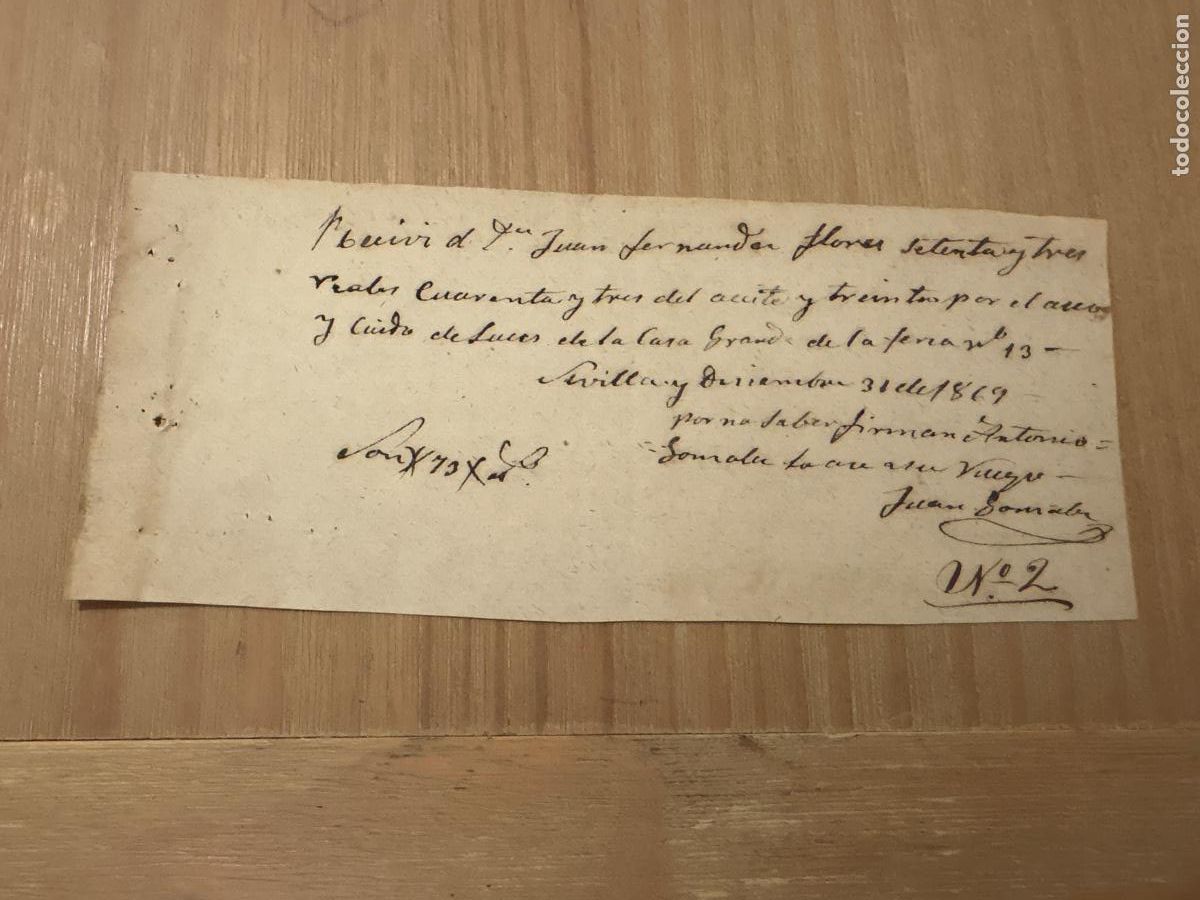 Recivi d Dn. Juan fernandez flores setenta y tres
reales Cuarenta y tres del aceite y treinta por el aseo
y Cuido de Luces de la Casa Grande de la feria no 13 –
Sevilla y Diciembre 31 de 1869 –
por no saber firmar Antonio =
= Gonzalez lo ace a su Ruego –
Son # 73 # rs
Juan Gonzalez
No. 2
todocoleccion